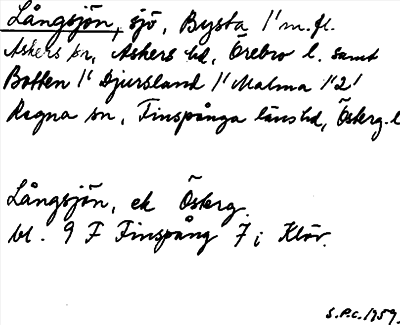 Långsjön, sjö, Bysta 1/1 m.fl.
Askers sn, Askers hd, Örebro l. samt
Botten 1/1 Djursland 1/1 Malma 1/2/1
Regna sn, Finspånga länshd, Österg. l
Långsjön, ek Österg.
bl. 9 F Finspång 7 i Klöv.
S.P.C. 1959.